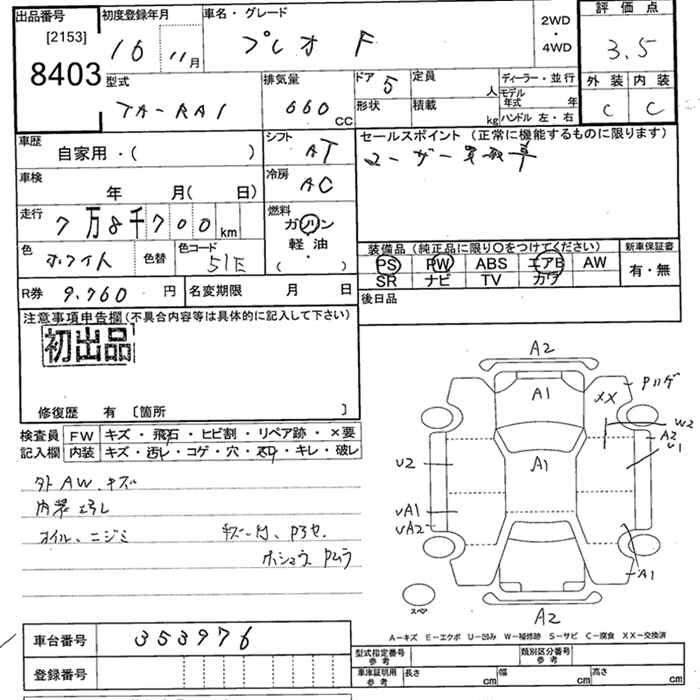 出品番号 初度登録年月 車名・グレード 評価点
[2153] 16 11月 プレオ F 2WD・4WD 3.5
8403
型式 排気量 ドア 定員 ディーラー・並行 外装 内装
TA-RA1 660 CC 5 人 モデル年式 年 C C
形状 積載 kg ハンドル 左・右
車歴 シフト セールスポイント (正常に機能するものに限ります)
自家用・( ) AT ユーザー買取車
車検 冷房
年 月( 日) AC
走行 燃料
7万8千700km ガソリン
軽油
・
( )
色 色替 色コード
ホワイト 51E
装備品 (純正品に限り○をつけてください) 新車保証書
PS PW ABS エアB AW 有・無
SR ナビ TV カワ
R券 9.760 円 名変期限 月 日
後日品
注意事項申告欄 (不具合内容等は具体的に記入して下さい)
初出品
修復歴 有 〔箇所 〕
検査員 FW キズ・飛石・ヒビ割・リペア跡・×要
記入欄 内装 キズ・汚レ・コゲ・穴・スリ・キレ・破レ
外 AW.キズ
内装 汚レ
オイル、ニジミ
A2
A1
XX
Pハゲ
W2
A2
U1
A1
U2
UA1
UA2
A1
スペア
A2
A-キズ E-エクボ U-凹み W-補修跡 S-サビ C-腐食 XX-交換済
車台番号 353976
登録番号
型式指定番号 参考 類別区分番号 参考
車庫証明用 参考 長さ cm 幅 cm 高さ cm